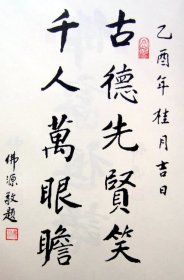 乙酉年桂月吉日
古德先賢笑
千人萬眼瞻
佛源敬題